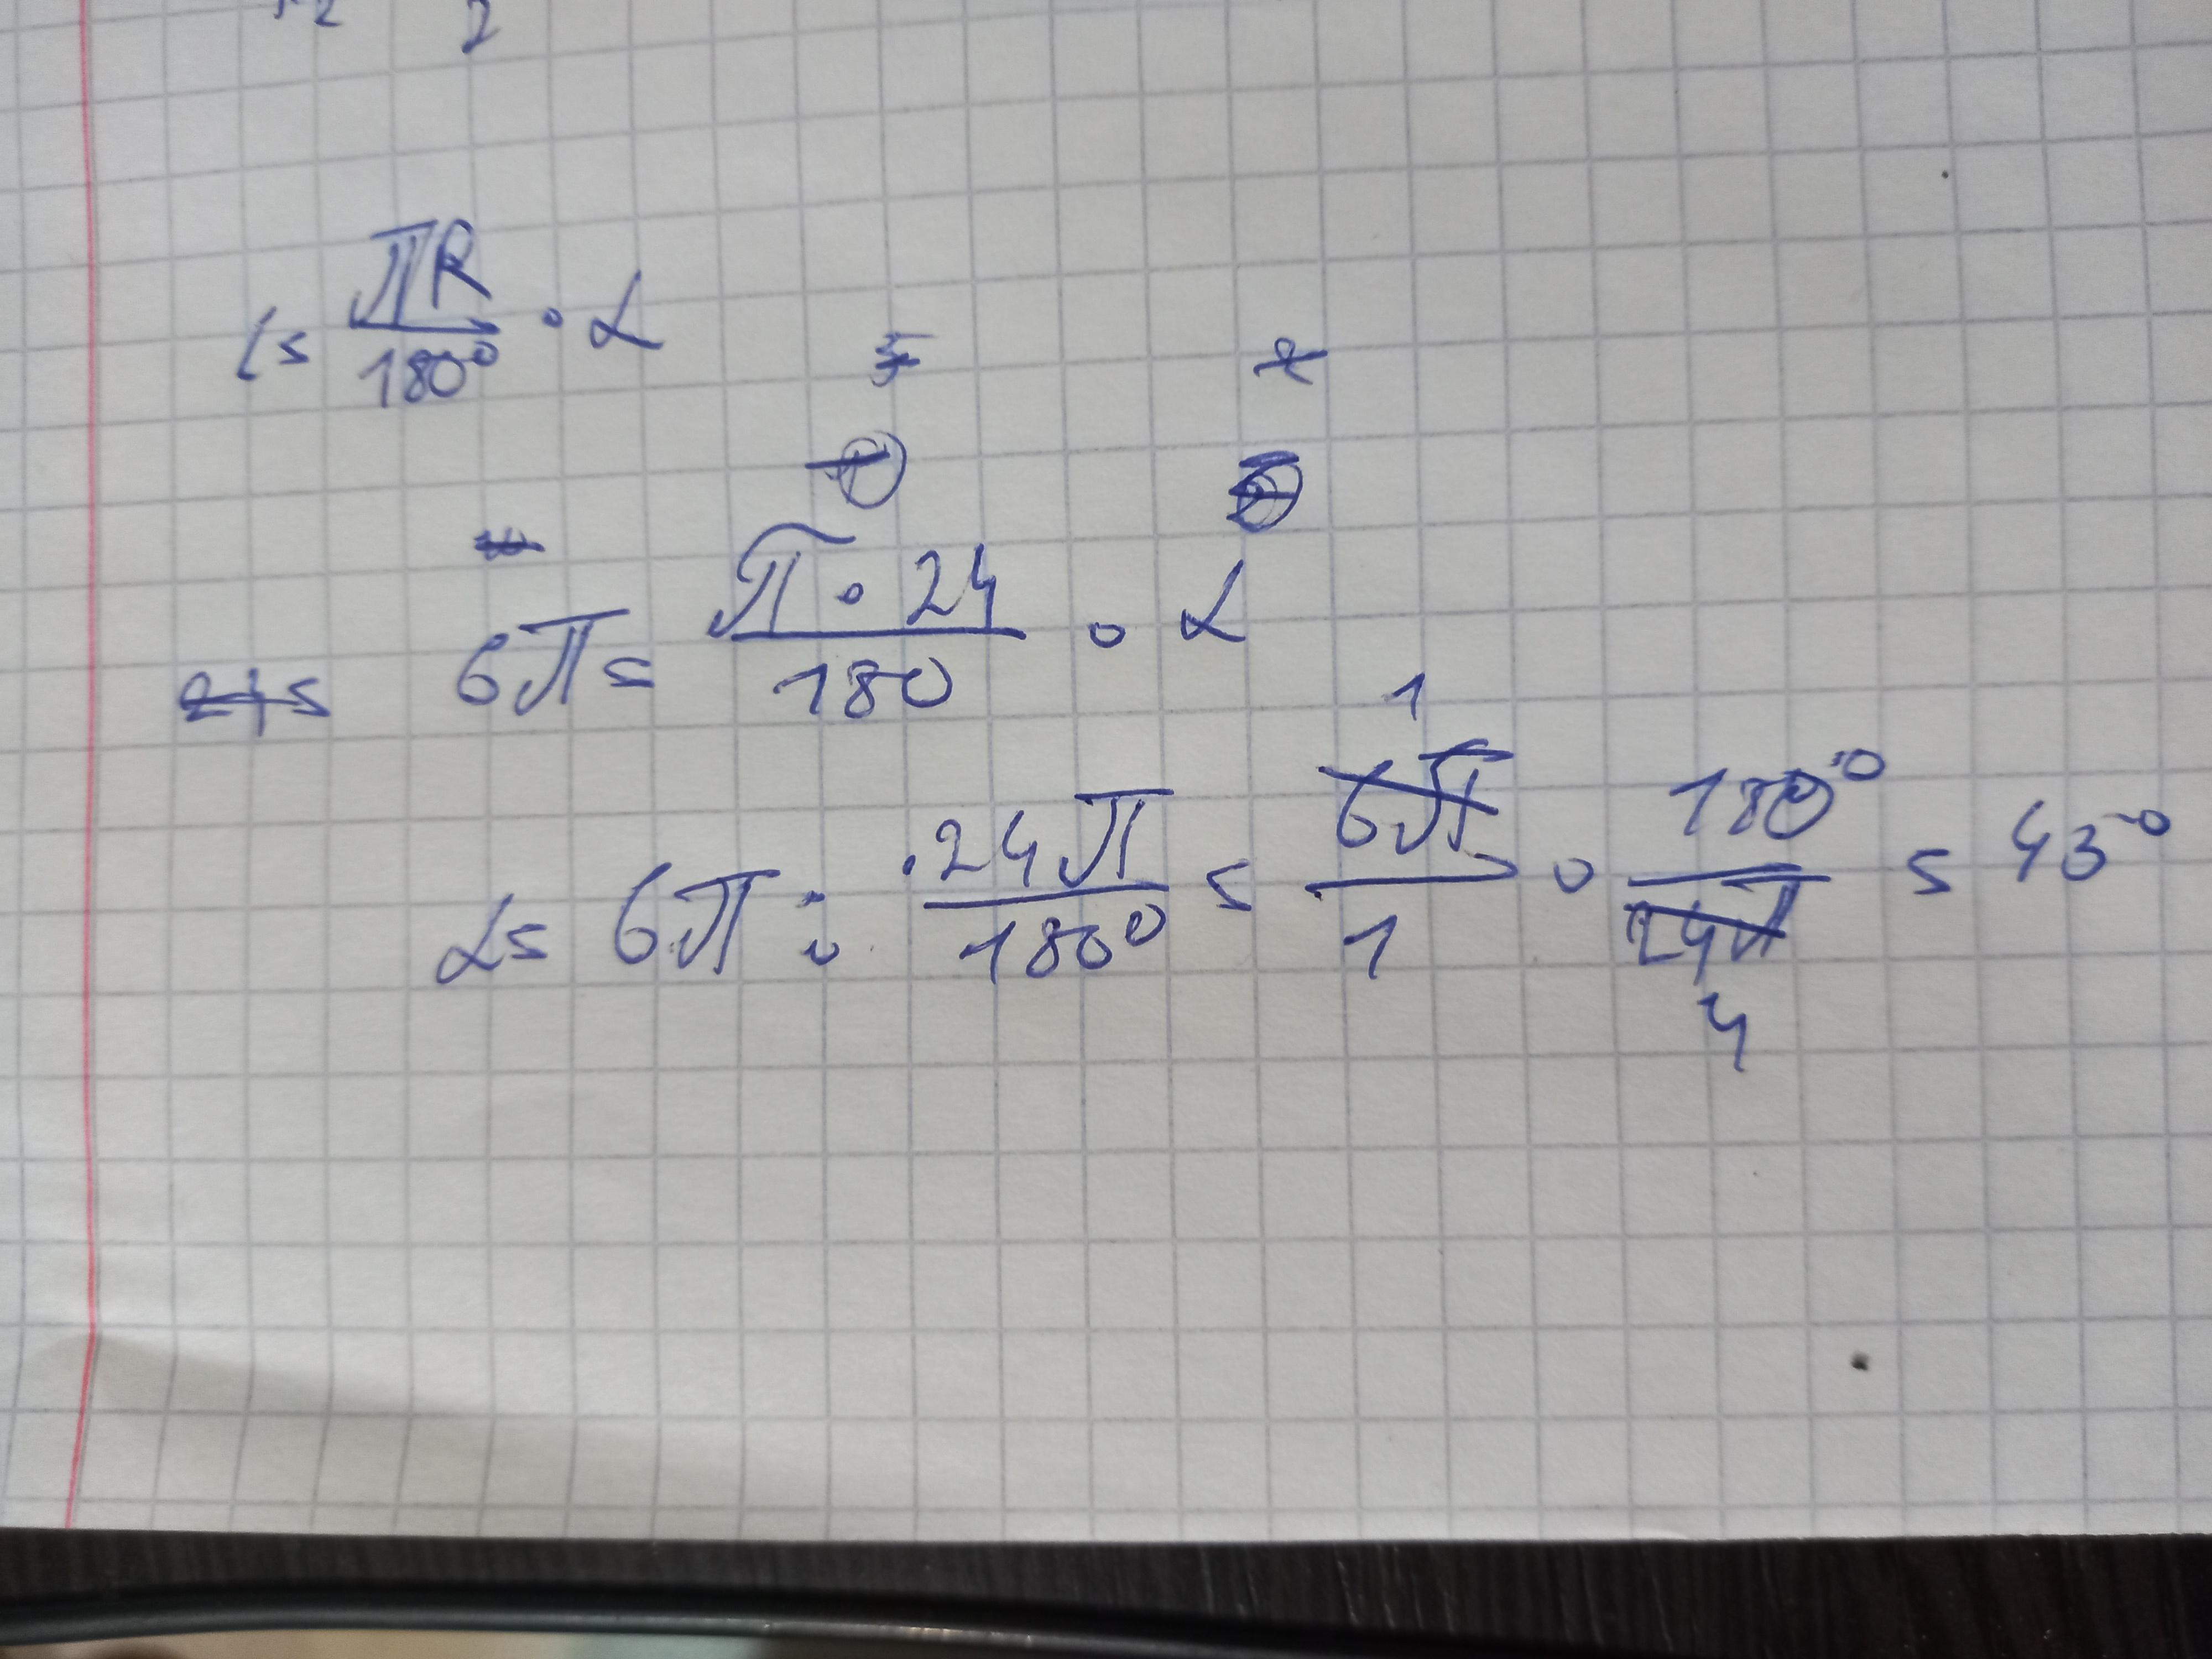 2 2
l = πR/180° · α
6π = π · 24/180 · α
α = 6π : 24π/180° = 6π/1 · 180°/24π = 45°
1
4